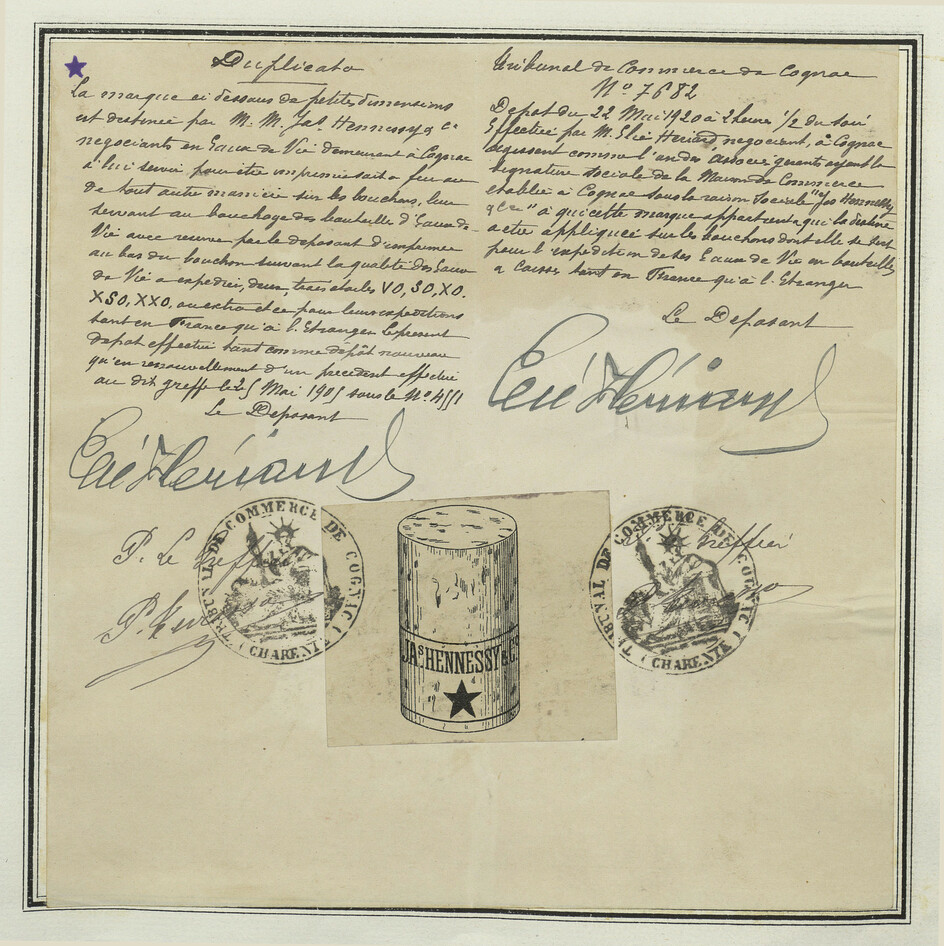 Duplicata
La marque ci dessous de petites dimensions
est destinée par M.M. Jas Hennessy & Ce
negociants en Eaux de Vie demeurant à Cognac
à lui servir pour être imprimée soit à feu ou
de tout autre manière sur les bouchons, leur
servant au bouchage des bouteille d'Eaux de
Vie avec reserve par le deposant d'imprimer
au bas du bouchon suivant la qualité des Eaux
de Vie a expedier, deux, trois etoiles VO, SO, XO.
XSO, XXO, ou extra et ce pour leurs expeditions
tant en France qu'à l'Etranger le present
depot effectué tant comme dépôt nouveau
qu'en renouvellement d'un precedent effectué
au dit greffe le 25 Mai 1905 sous le No. 4551
Le Deposant
P. Le Greffier
Tribunal de Commerce de Cognac
No 7682
Depot du 22 Mai 1920 à 2 heures 1/2 du soir
Effectué par M. Elié Heriard, negociant, à Cognac
agissant comme l'un des associés gerants ayant la
signature sociale de la Maison de Commerce
etablie à Cognac sous la raison sociale "Jas Hennessy
& Ce" à qui cette marque appartient & qui la destine
a etre appliquée sur les bouchons dont elle se sert
pour l'expedition de ses Eaux de Vie en bouteilles
a caisses tant en France qu'à l'Etranger
Le Deposant
Greffier
TRIBUNAL DE COMMERCE DE COGNAC
(CHARENTE)
JAS HENNESSY & Co
TRIBUNAL DE COMMERCE DE COGNAC
(CHARENTE)